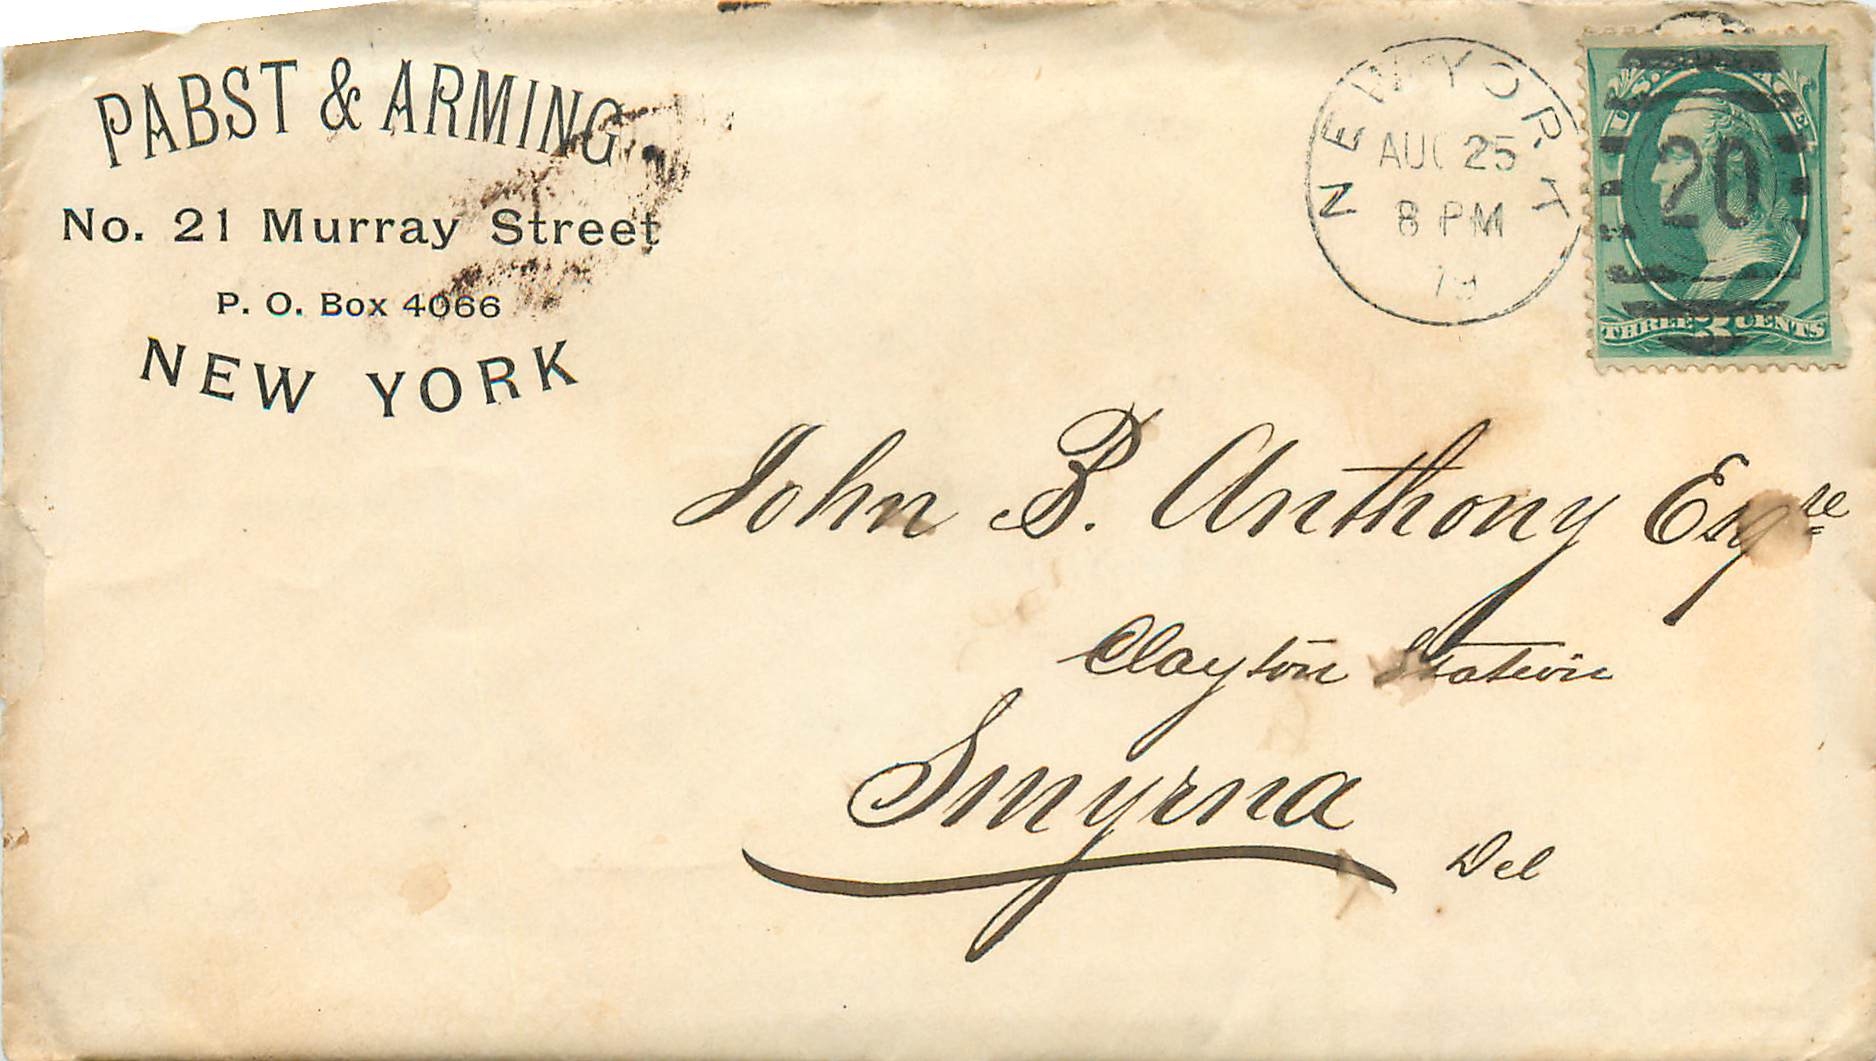 PABST & ARMING
No. 21 Murray Street
P. O. Box 4066
NEW YORK
NEW YORK
AUG 25
8 PM
79
20
THREE 3 CENTS
John B. Anthony Esqre
Clayton Station
Smyrna
Del